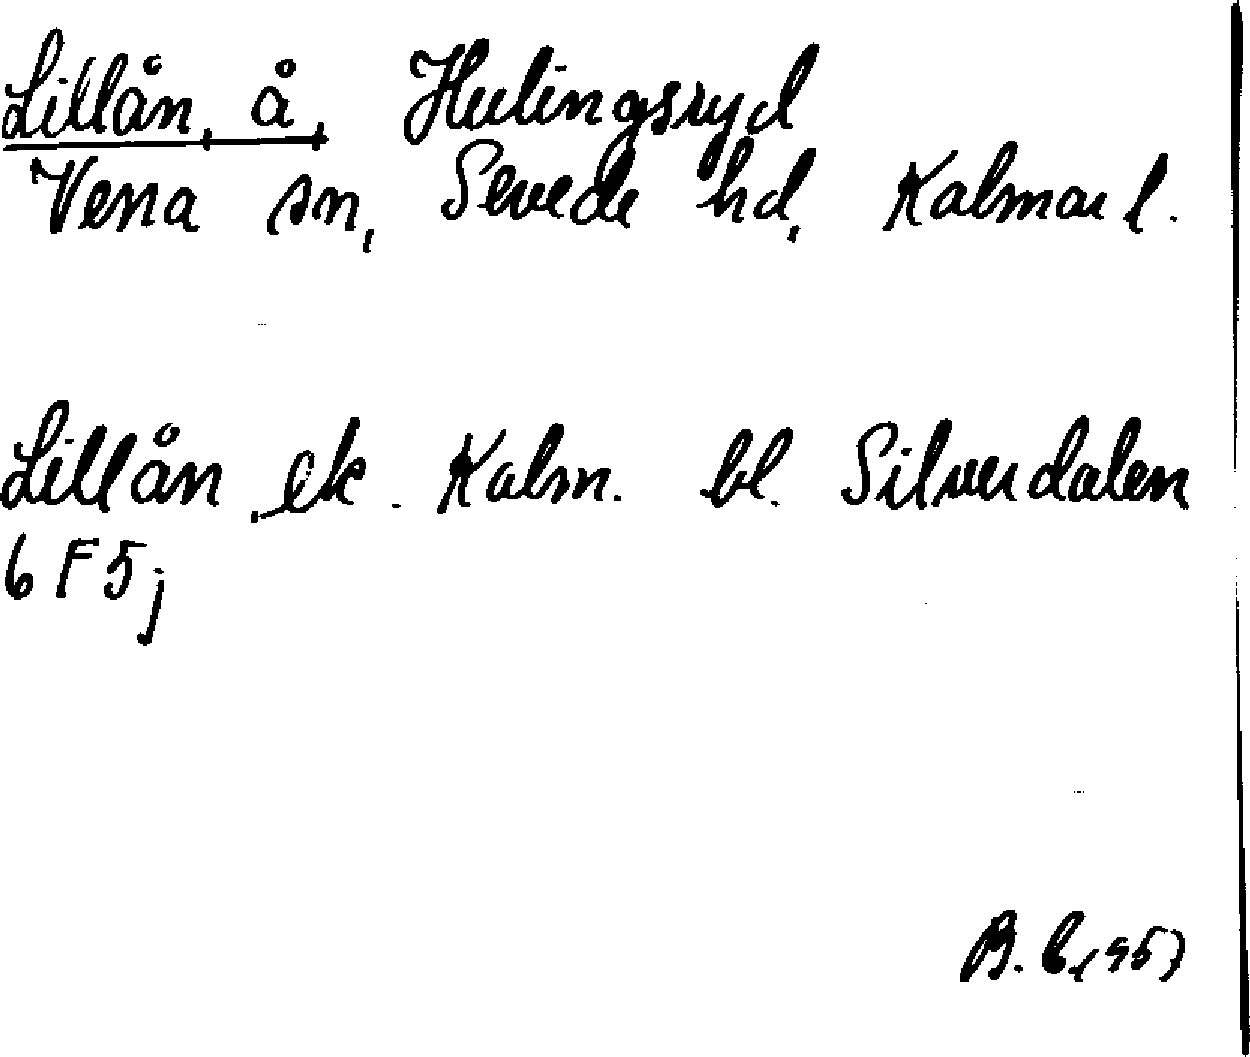 Lillån, å, Hulingsryd
Vena sn, Sevede hd, Kalmar l.
Lillån, ek. Kalm. bl. Silverdalen
6 F 5 j